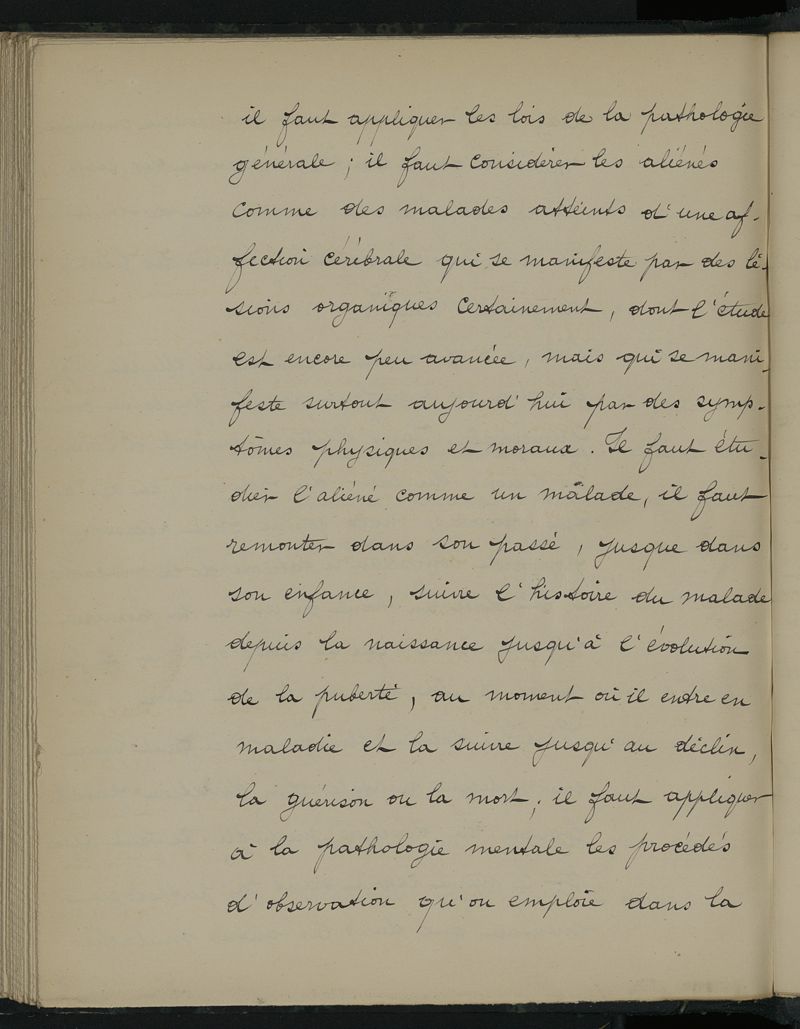 il faut appliquer les lois de la pathologie
générale ; il faut considérer les aliénés
comme des malades atteints d'une af-
fection cérébrale qui se manifeste par des lé-
sions organiques certainement, dont l'étude
est encore peu avancée, mais qui se mani-
feste surtout aujourd'hui par des symp-
tômes physiques et moraux. Il faut étu-
dier l'aliéné comme un malade, il faut
remonter dans son passé, jusque dans
son enfance, suivre l'histoire du malade
depuis la naissance jusqu'à l'évolution
de la puberté, au moment où il entre en
maladie et la suivre jusqu'au déclin,
la guérison ou la mort ; il faut appliquer
à la pathologie mentale les procédés
d'observation qu'on emploie dans la